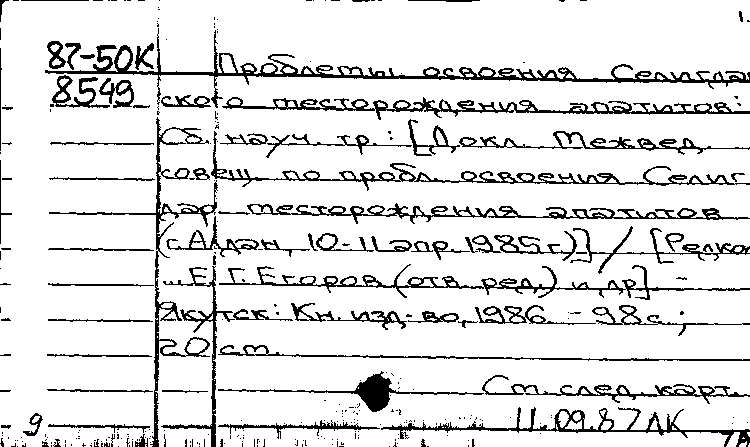 87-50К
8549
Проблемы освоения Селигдар
ского месторождения апатитов:
Сб. науч. тр.: [Докл. Межвед.
совещ. по пробл. освоения Селиг
дар. месторождения апатитов
(г. Алдан, 10-11 апр. 1985 г.)] / [Редкол
...Е. Г. Егоров (отв. ред.) и др]. -
Якутск: Кн. изд-во, 1986. - 98 с.;
20 см.
См. след. карт.
9
11.09.87 ЛК